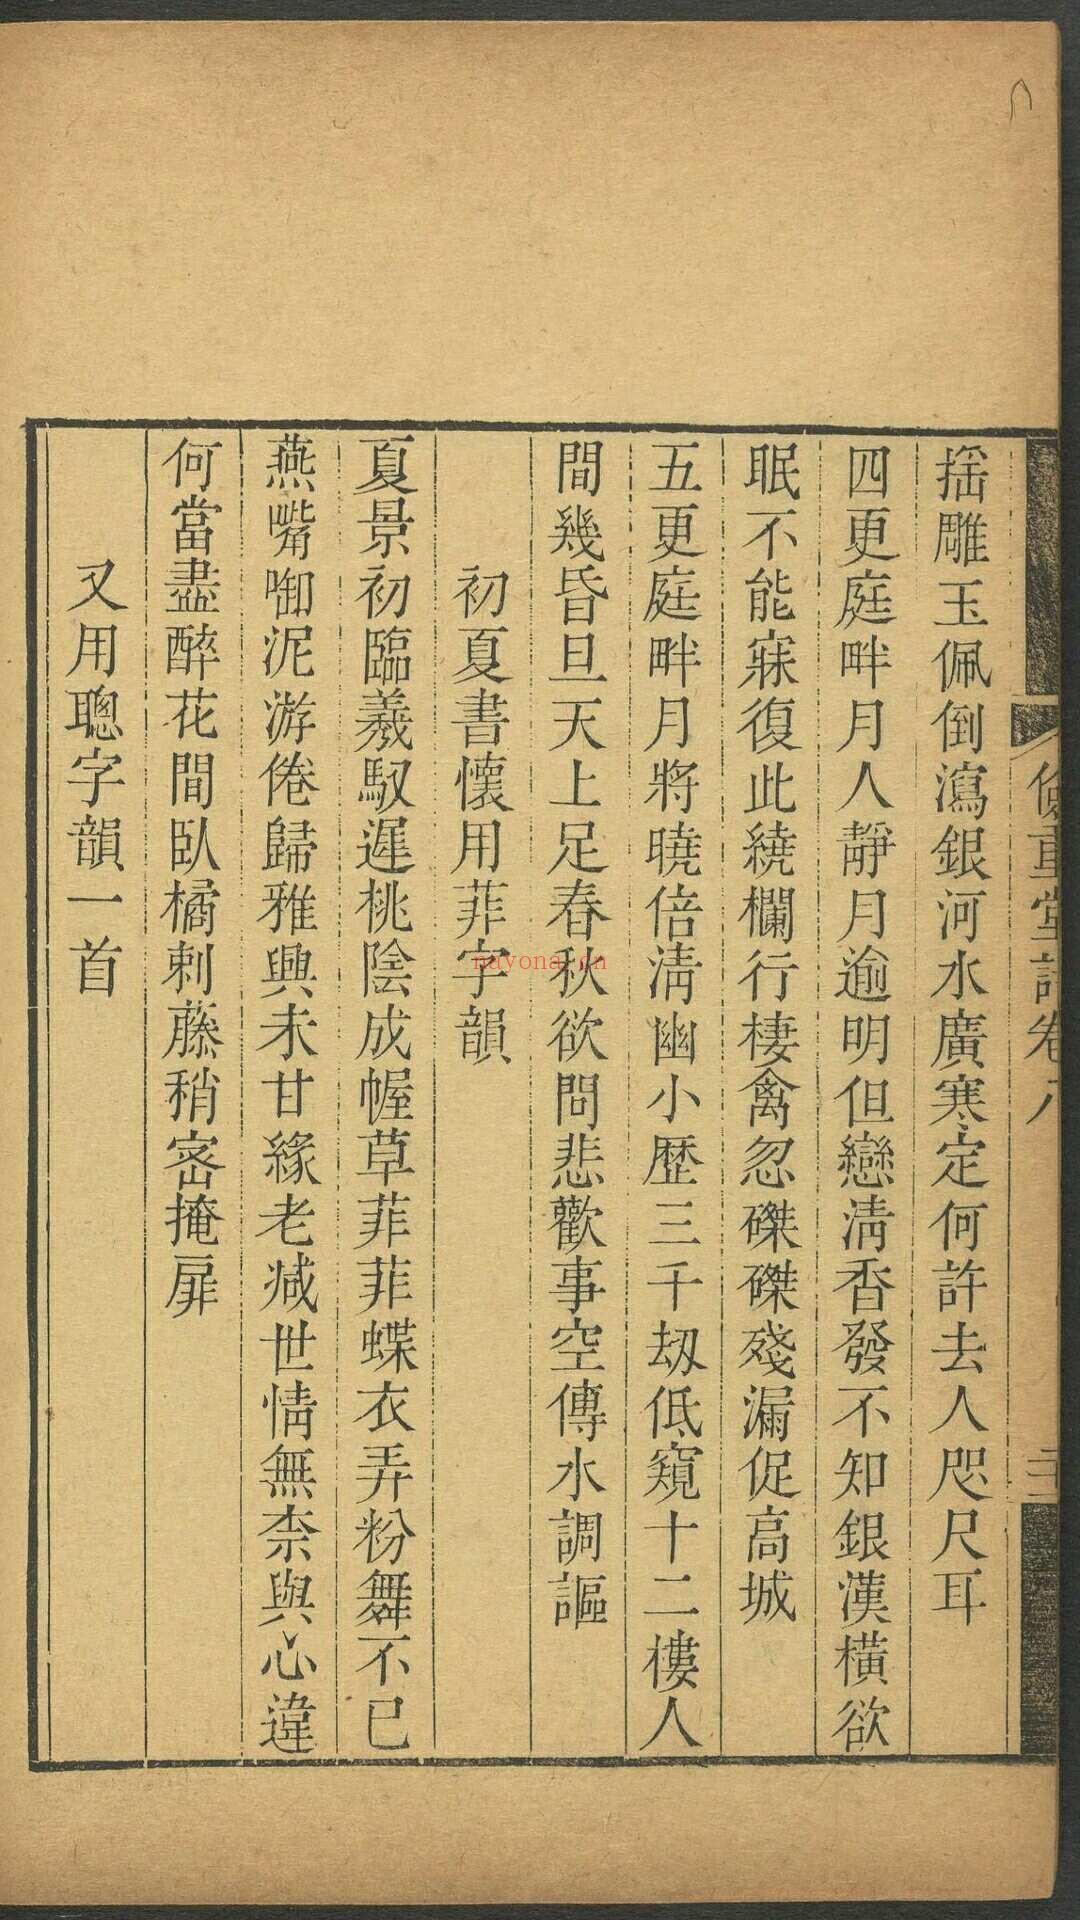 揺雕玉佩倒瀉銀河水廣寒定何許去人咫尺耳
四更庭畔月人靜月逾明但戀清香發不知銀漢橫欲
眠不能寐復此繞欄行棲禽忽磔磔殘漏促高城
五更庭畔月將曉倍清幽小歷三千刼低窺十二樓人
間幾昏旦天上足春秋欲問悲歡事空傳水調謳
初夏書懷用菲字韻
夏景初臨羲馭遲桃陰成幄草菲菲蝶衣弄粉舞不已
燕嘴啣泥游倦歸雅興未甘緣老減世情無柰與心違
何當盡醉花間臥橘刺藤稍密掩扉
又用聰字韻一首
重堂詩卷八
nayona.cn